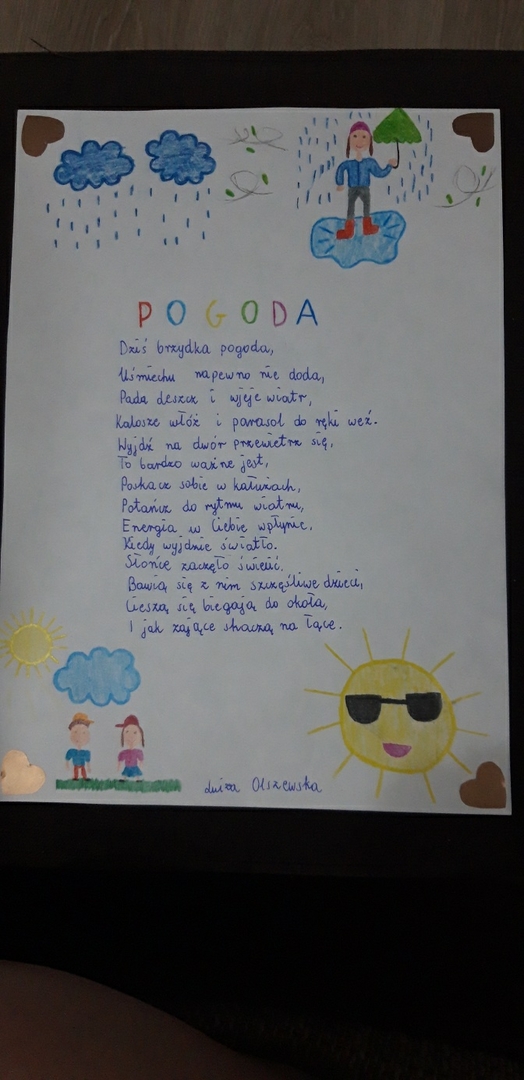 POGODA
Dziś brzydka pogoda,
Uśmiechu napewno nie doda,
Pada deszcz i wjeje wiatr,
Kalosze włóż i parasol do ręki weź.
Wyjdź na dwór przewietrz się,
To bardzo ważne jest,
Poskacz sobie w kałużach,
Potańcz do rytmu wiatru,
Energia w Ciebie wpłynie,
Kiedy wyjdnie światło.
Słońce zaczęło świecić.
Bawią się z nim szczęśliwe dzieci,
Cieszą się biegają do okoła,
I jak zające skaczą na łące.
Luiza Olszewska